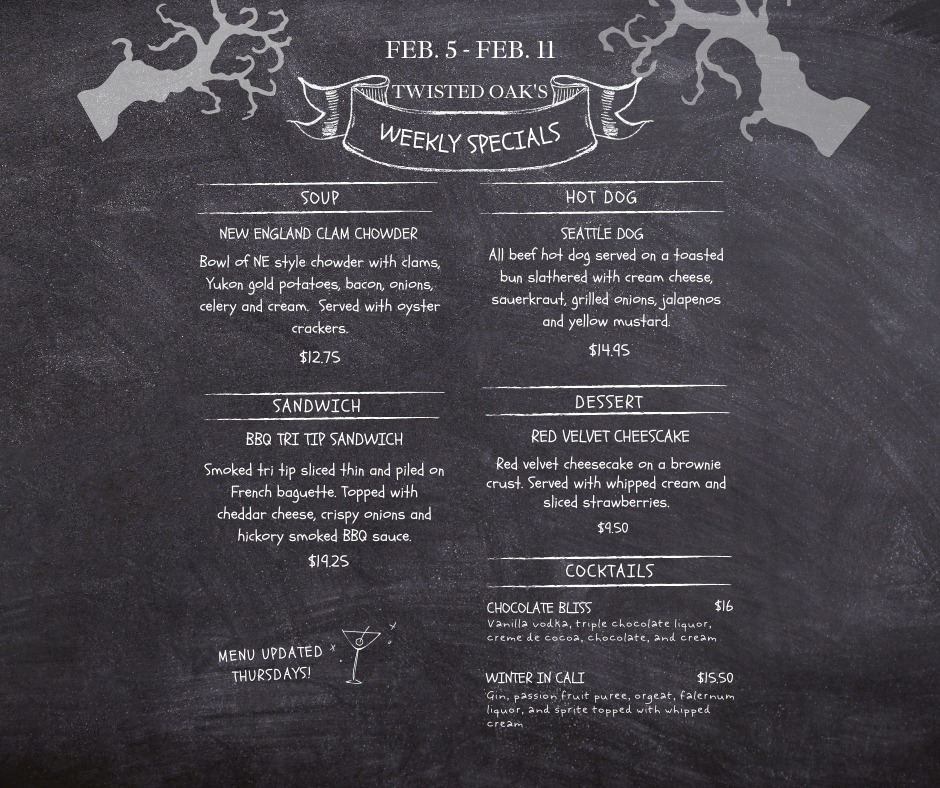 FEB. 5 - FEB. 11
TWISTED OAK'S
WEEKLY SPECIALS
SOUP
NEW ENGLAND CLAM CHOWDER
Bowl of NE style chowder with clams,
Yukon gold potatoes, bacon, onions,
celery and cream. Served with oyster
crackers.
$12.75
SANDWICH
BBQ TRI TIP SANDWICH
Smoked tri tip sliced thin and piled on
French baguette. Topped with
cheddar cheese, crispy onions and
hickory smoked BBQ sauce.
$19.25
MENU UPDATED
THURSDAYS!
HOT DOG
SEATTLE DOG
All beef hot dog served on a toasted
bun slathered with cream cheese,
sauerkraut, grilled onions, jalapenos
and yellow mustard.
$14.95
DESSERT
RED VELVET CHEESCAKE
Red velvet cheesecake on a brownie
crust. Served with whipped cream and
sliced strawberries.
$9.50
COCKTAILS
CHOCOLATE BLISS $16
Vanilla vodka, triple chocolate liquor,
creme de cocoa, chocolate, and cream
WINTER IN CALI $15.50
Gin, passion fruit puree, orgeat, falernum
liquor, and sprite topped with whipped
cream